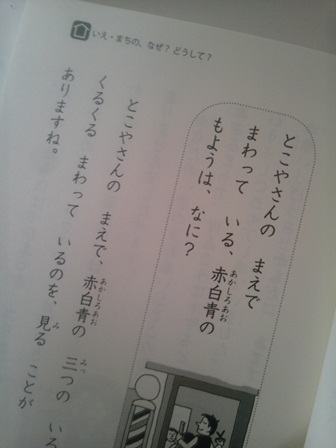 いえ・まちの、なぜ？どうして？
とこやさんの まえで
まわって いる、赤白青の
あかしろあお
もようは、なに？
とこやさんの まえで、赤白青の 三つの い
あかしろあお みっ
くるくる まわって いるのを、見る ことが
み
ありますね。